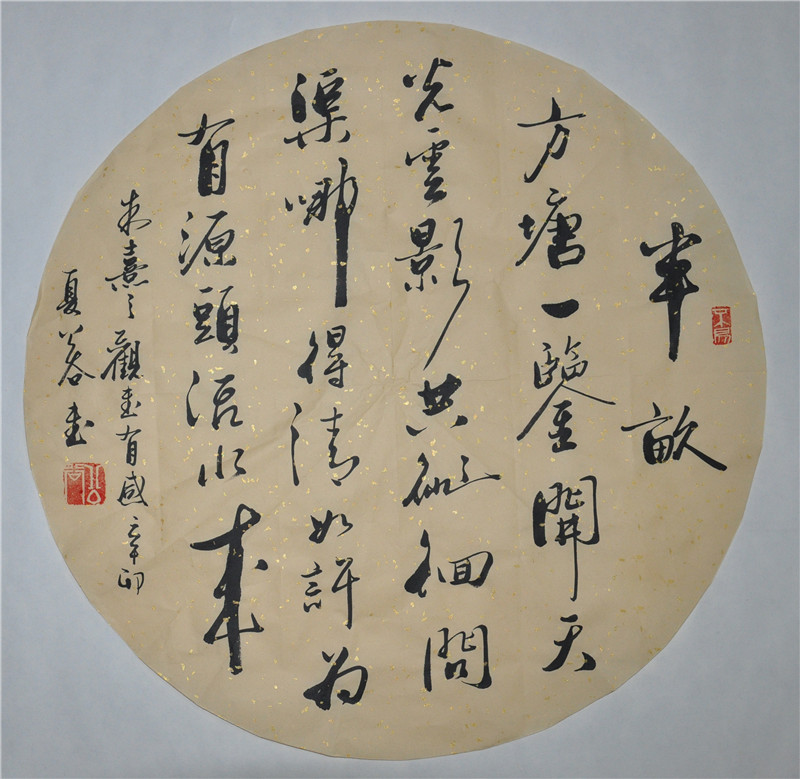 半畝
方塘一鑒開天
光雲影共徘徊問
渠哪得清如許为
有源頭活水来
朱熹之觀書有感辛卯
夏書